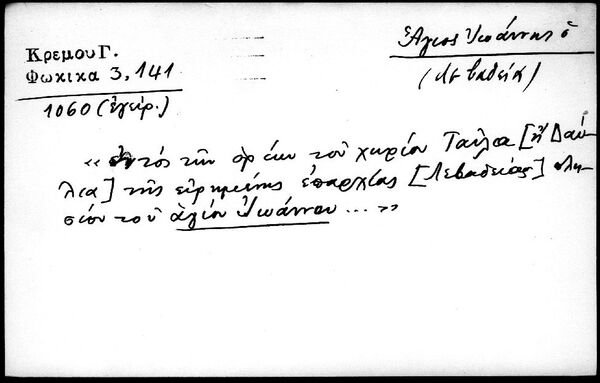 Κρεμου Γ.
Φωκικα 3, 141
1060 (ἐγείρ.)
Ἅγιος Ἰωάννης ὁ
(Λεβαδεία)
« ἐντός τῶν ὁρίων τοῦ χωρίου Ταύλια [ἤ Δαύ
λια] τῆς εἰρημένης ἐπαρχίας [Λεβαδείας] πλη
σίον τοῦ ἁγίου Ἰωάννου ... »